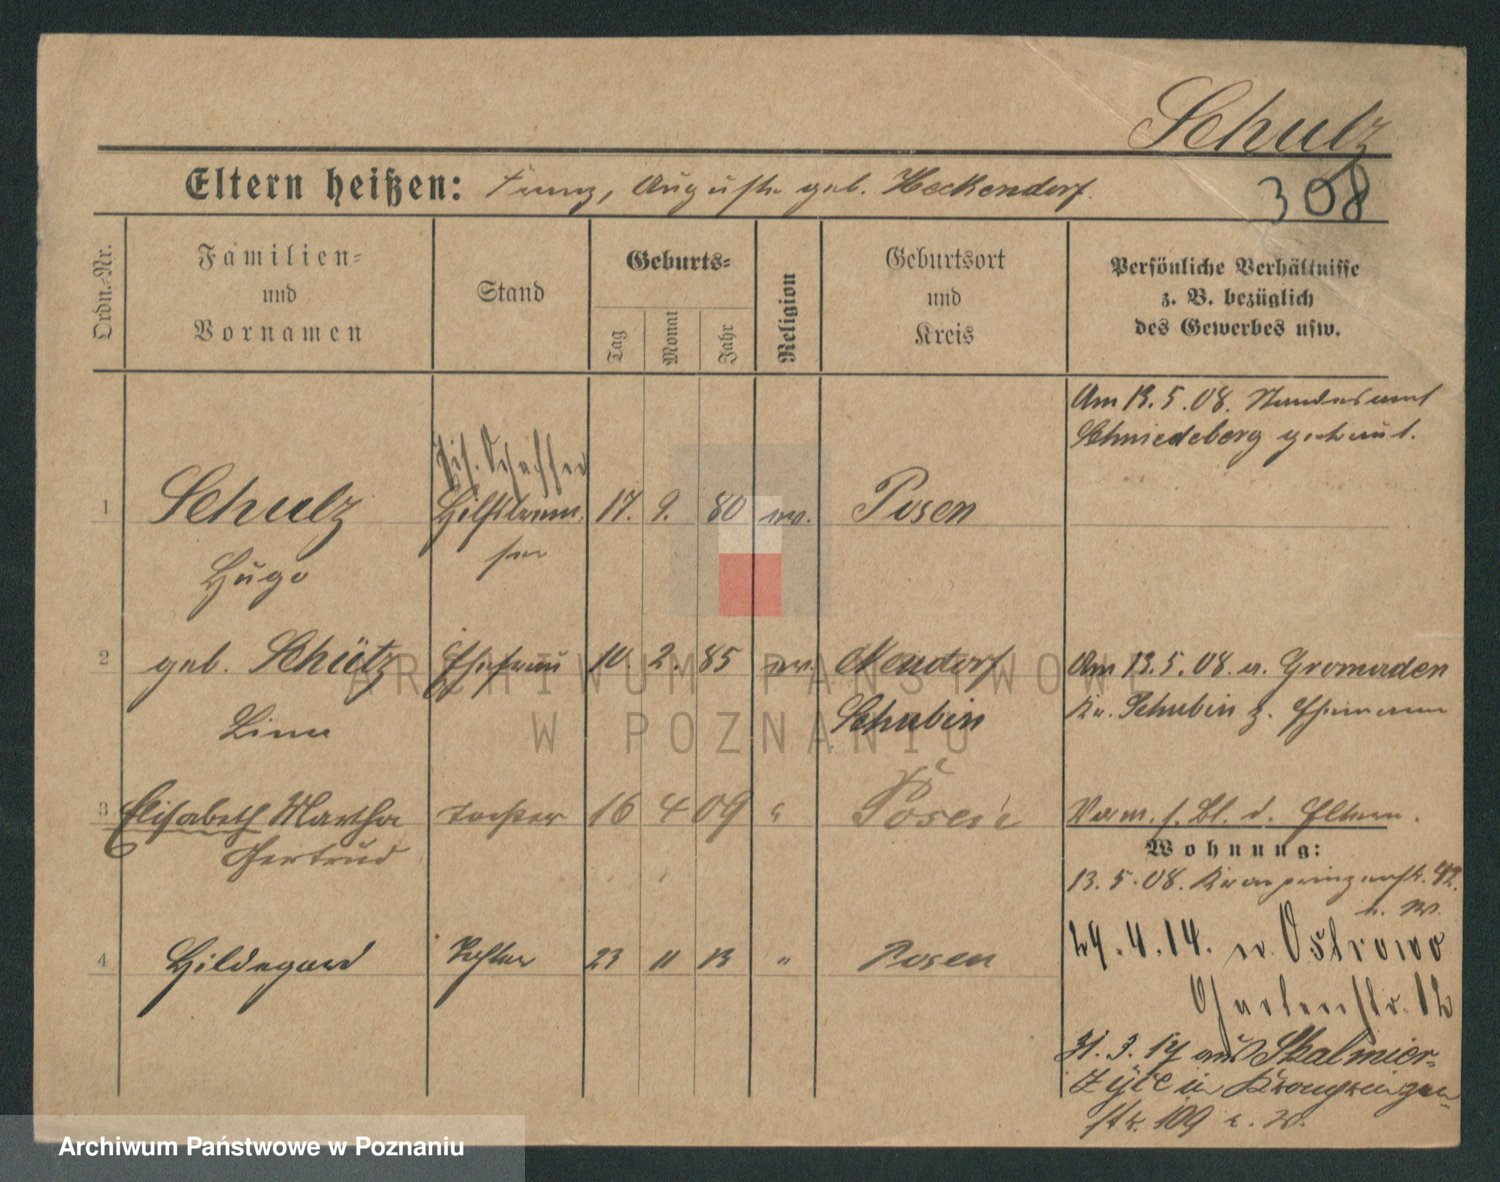 Schulz
Eltern heißen: Franz, Auguste geb. Heckendorf.
308
Ordn.-Nr.
Familien-
und
Vornamen
Stand
Geburts-
Tag
Monat
Jahr
Religion
Geburtsort
und
Kreis
Persönliche Verhältnisse
z. B. bezüglich
des Gewerbes usw.
Am 13.5.08. Standesamt
Schmiedeberg getraut.
1 Schulz 17. 9. 80 ev. Posen
Hugo
2 geb. Schütz Ehefrau 10. 2. 85 ev.
Schubin
Am 13.5.08. a. Gromaden
Kr. Schubin z. Ehemann
Lina
3 Elisabeth Martha Tochter 16 4 09 " Posen
Gertrud
Verm. s. Bl. d. Eltern.
Wohnung:
13.5.08. Kronprinzenstr. 92.
4 Hildegard Tochter 23 11 13 " Posen
29.4.14. n. Ostrowo
Gartenstr. 12
31.3.17 aus Skalmier-
zyce in Kronprinzen-
str. 109
ARCHIWUM PAŃSTWOWE
W POZNANIU
Archiwum Państwowe w Poznaniu